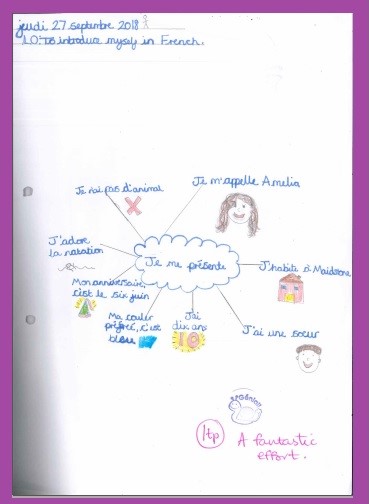 jeudi 27 septembre 2018
LO: to introduce myself in French.
Je n'ai pas d'animal
Je m'appelle Amelia
J'adore
la natation
Je me présente
J'habite à Maidstone
Mon anniversaire,
c'est le six juin
Ma couler
préféré, c'est
bleu
J'ai
dix ans
10
J'ai une soeur
1tp
A fantastic
effort.